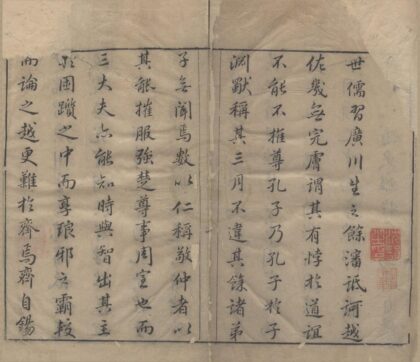 世儒習廣川生之餘瀋詆訶越
佐幾無完膚謂其有悖於道誼
不能不推尊孔子乃孔子於子
淵獸稱其三月不違其餘諸弟
子無聞焉數以仁稱敬仲者以
其能摧服強楚尊事周室也而
三大夫亦能知時與智出其主
於困躓之中而享琅邪之霸較
而論之越更難於齊焉齊自錫